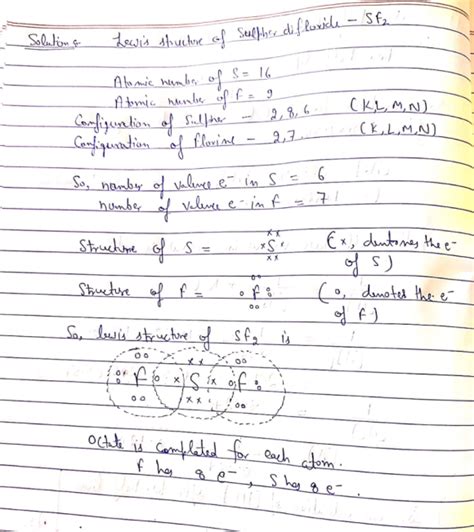 Solution :- Lewis structure of Sulpher difluoride - SF2
Atomic number of S = 16
Atomic number of F = 9
Configuration of Sulpher - 2,8,6 (K,L,M,N)
Configuration of florine - 2,7. (K,L,M,N)
So, number of valence e- in S = 6
number of valence e- in F = 7
Structure of S = ×S× (×, dentones the e-
of S)
Structure of F = F (o, denotes the e-
of F.)
So, lewis structure of SF2 is
F o × S × o F
Octate is completed for each atom.
F has 8 e-, S has 8 e-.